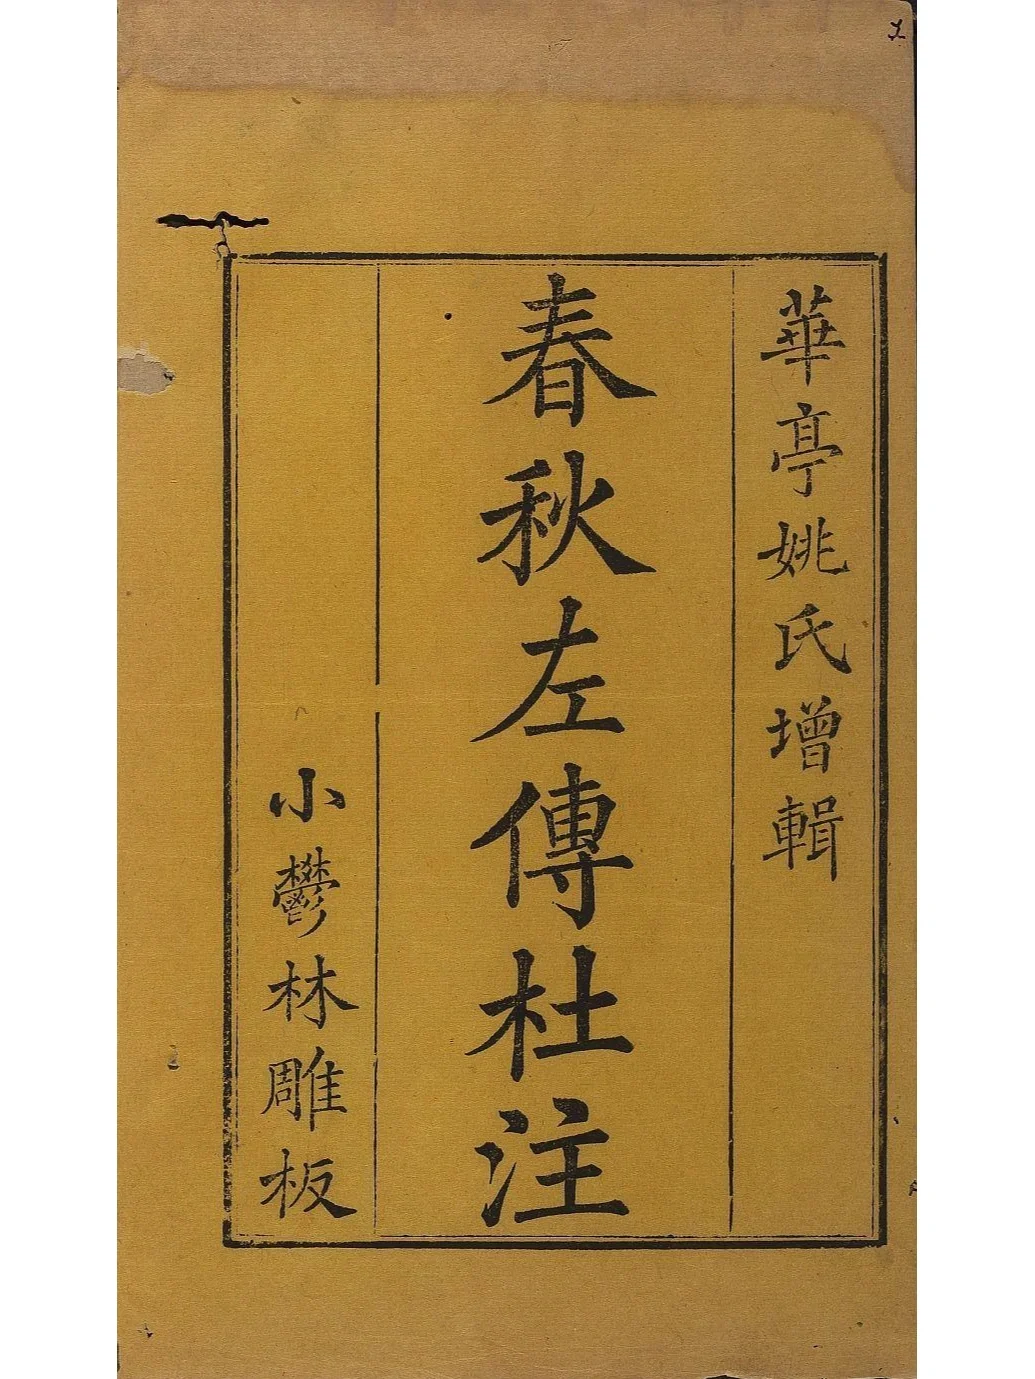 華亭姚氏增輯
春秋左傳杜注
小鬱林雕板